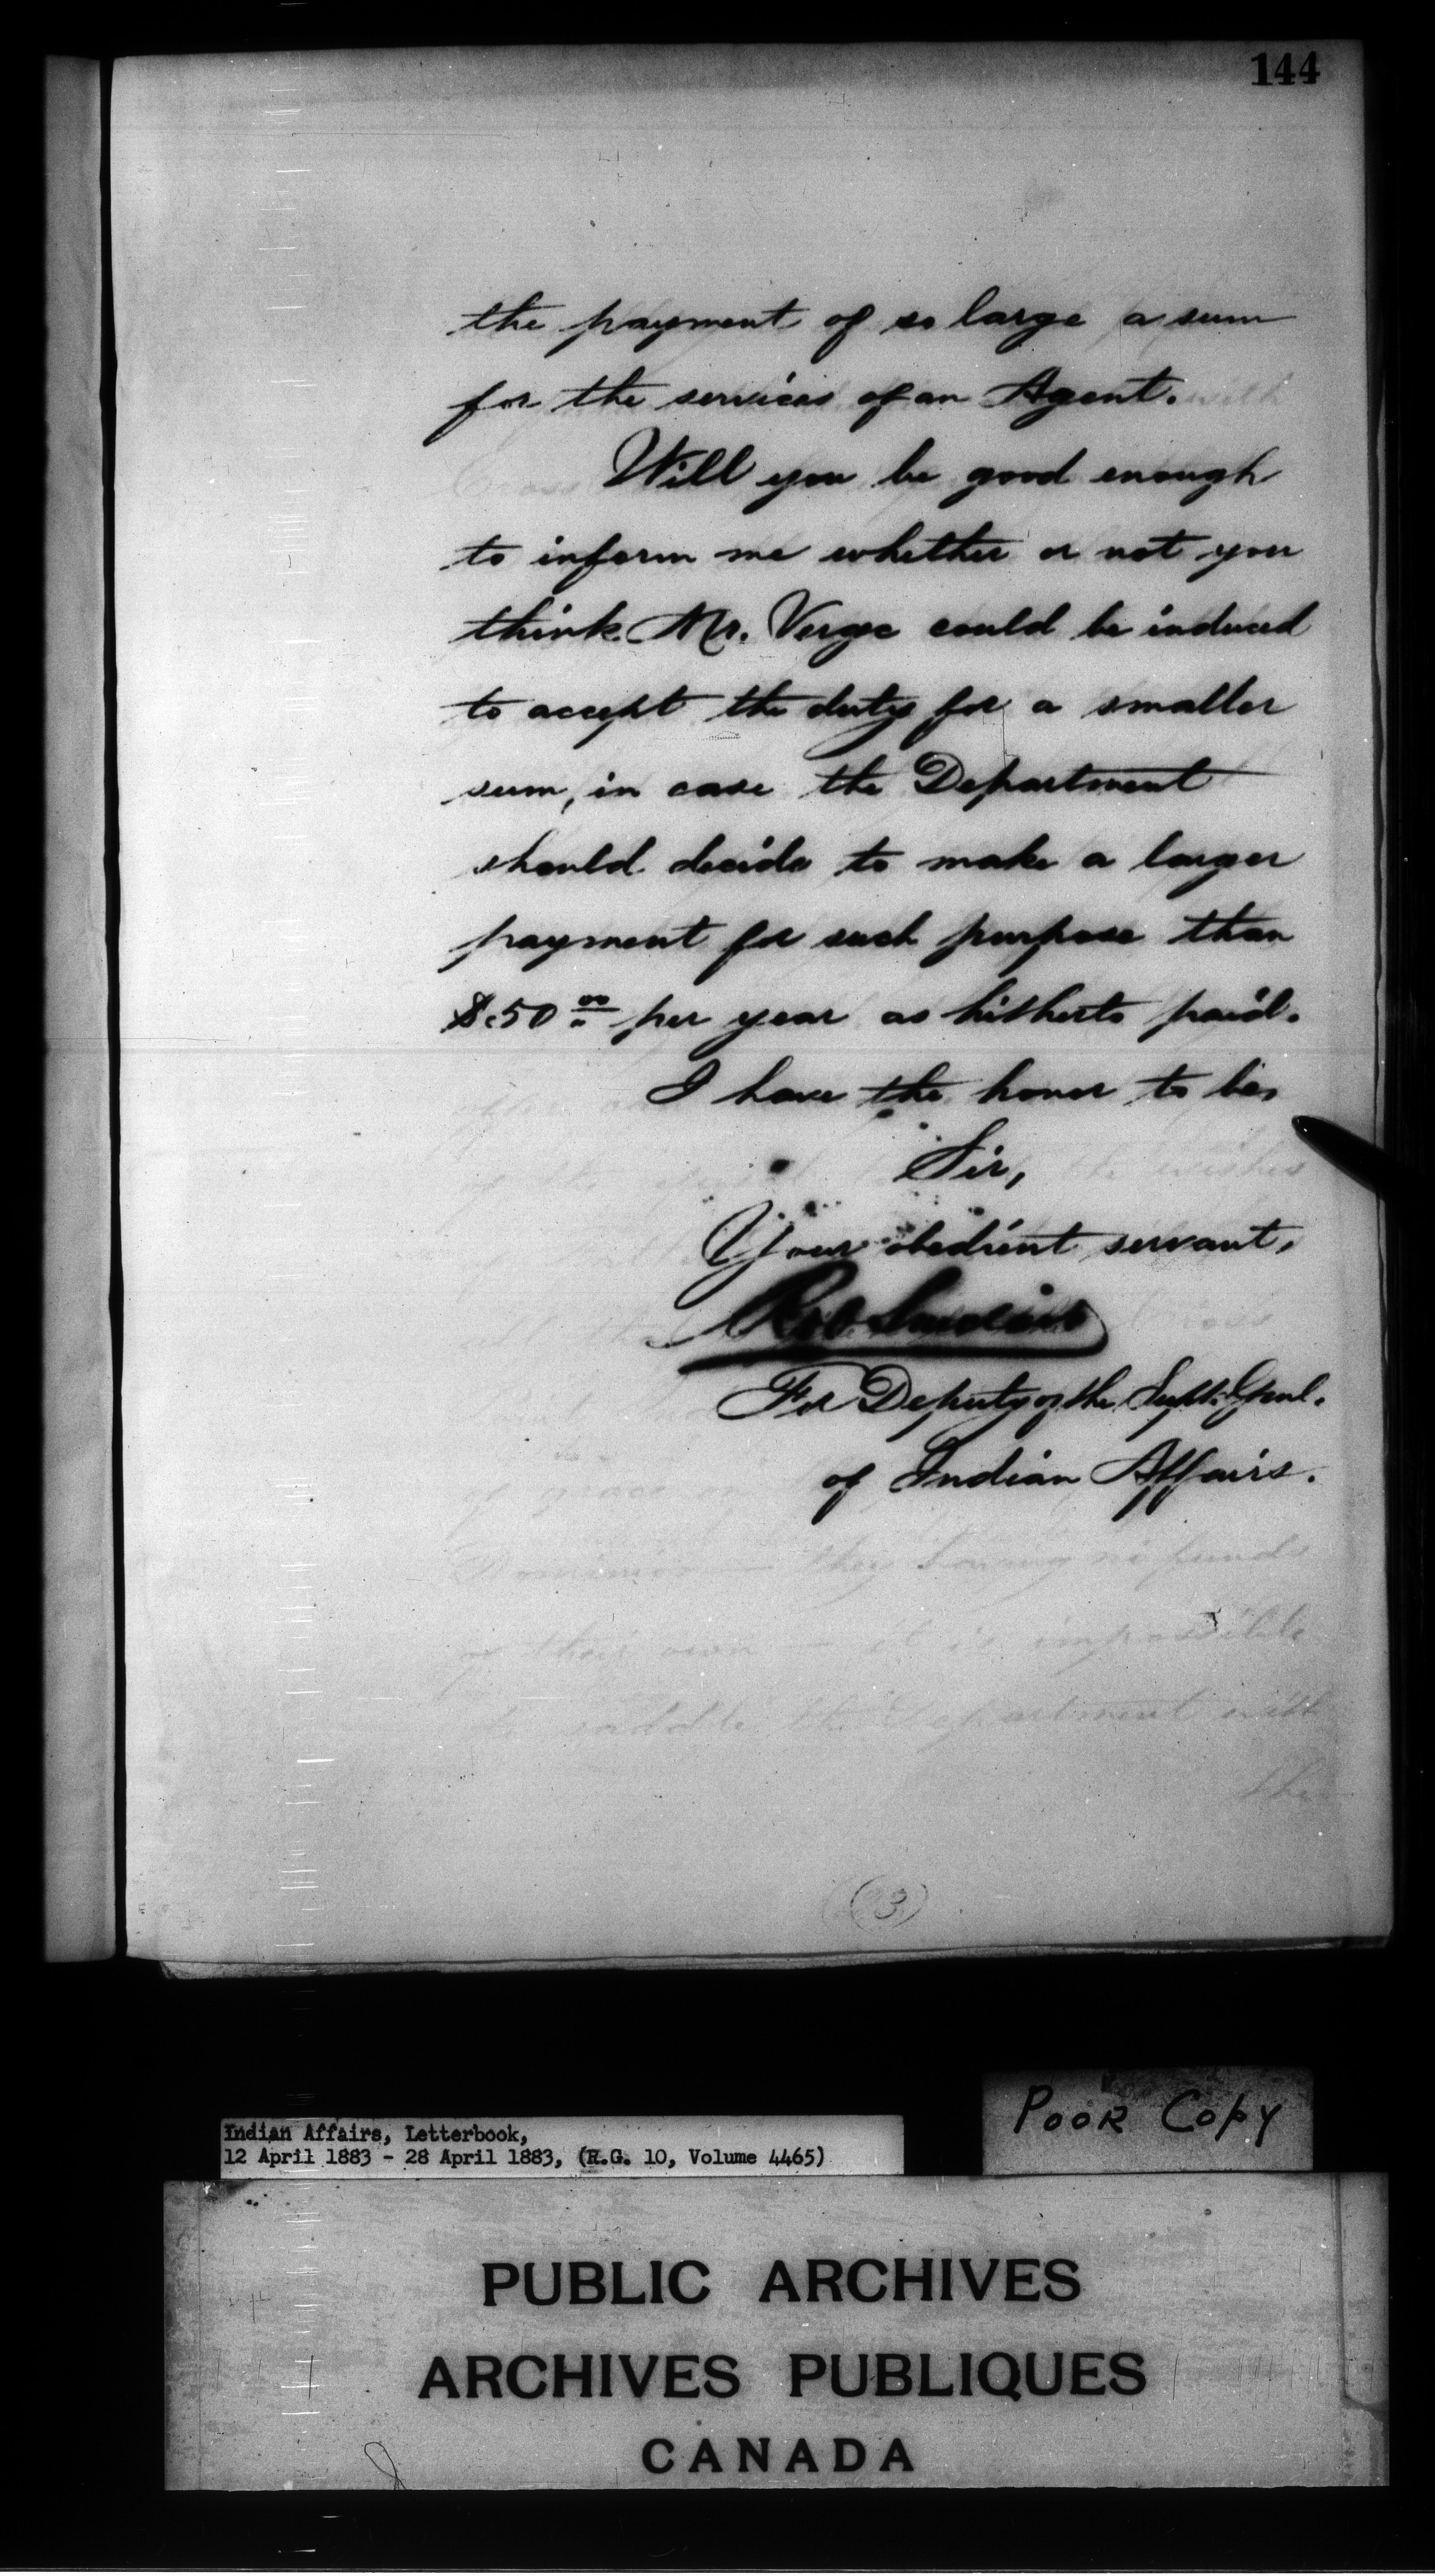 144
the payment of so large a sum
for the services of an Agent.
Will you be good enough
to inform me whether or not you
think Mr. Verge could be induced
to accept the duty for a smaller
sum, in case the Department
should decide to make a larger
payment for such purpose than
$50.00 per year as hitherto paid.
I have the honor to be,
Sir,
Your obedient servant,
For Deputy of the Supt. Genl.
of Indian Affairs.
of their own — it is impossible
the Department with
the
(3)
Poor Copy
Indian Affairs, Letterbook,
12 April 1883 - 28 April 1883, (R.G. 10, Volume 4465)
PUBLIC ARCHIVES
ARCHIVES PUBLIQUES
CANADA